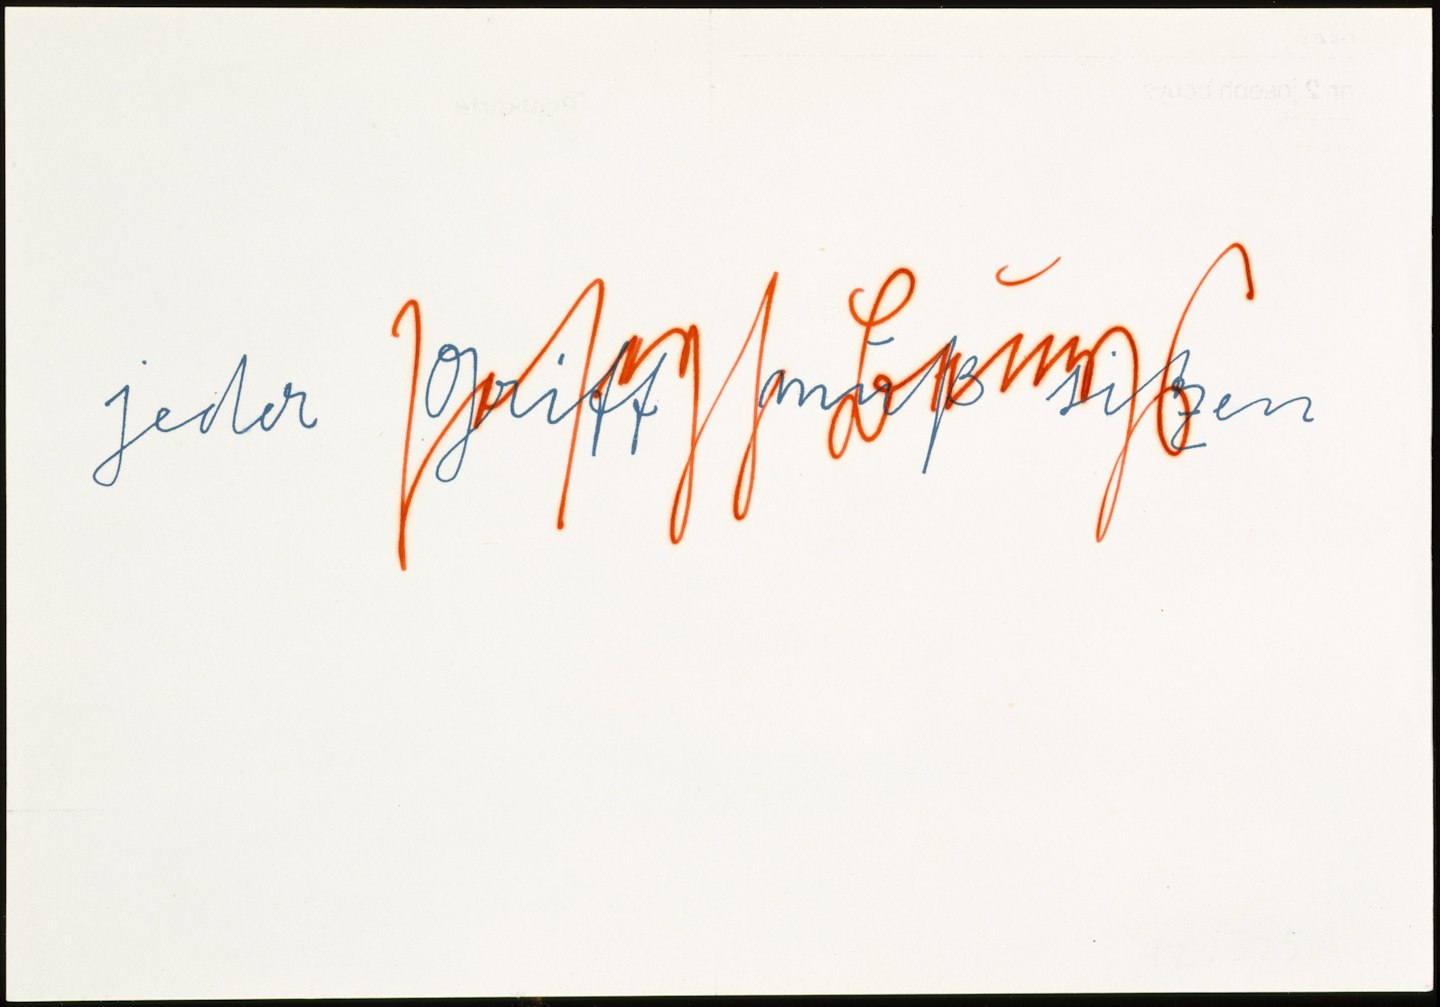 jeder Griff muß sitzen
Joseph Beuys